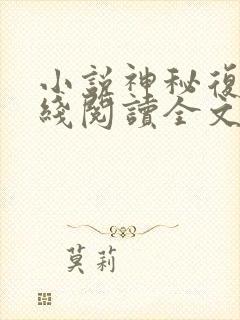 小說神秘復
綫閱讀全文
莫莉